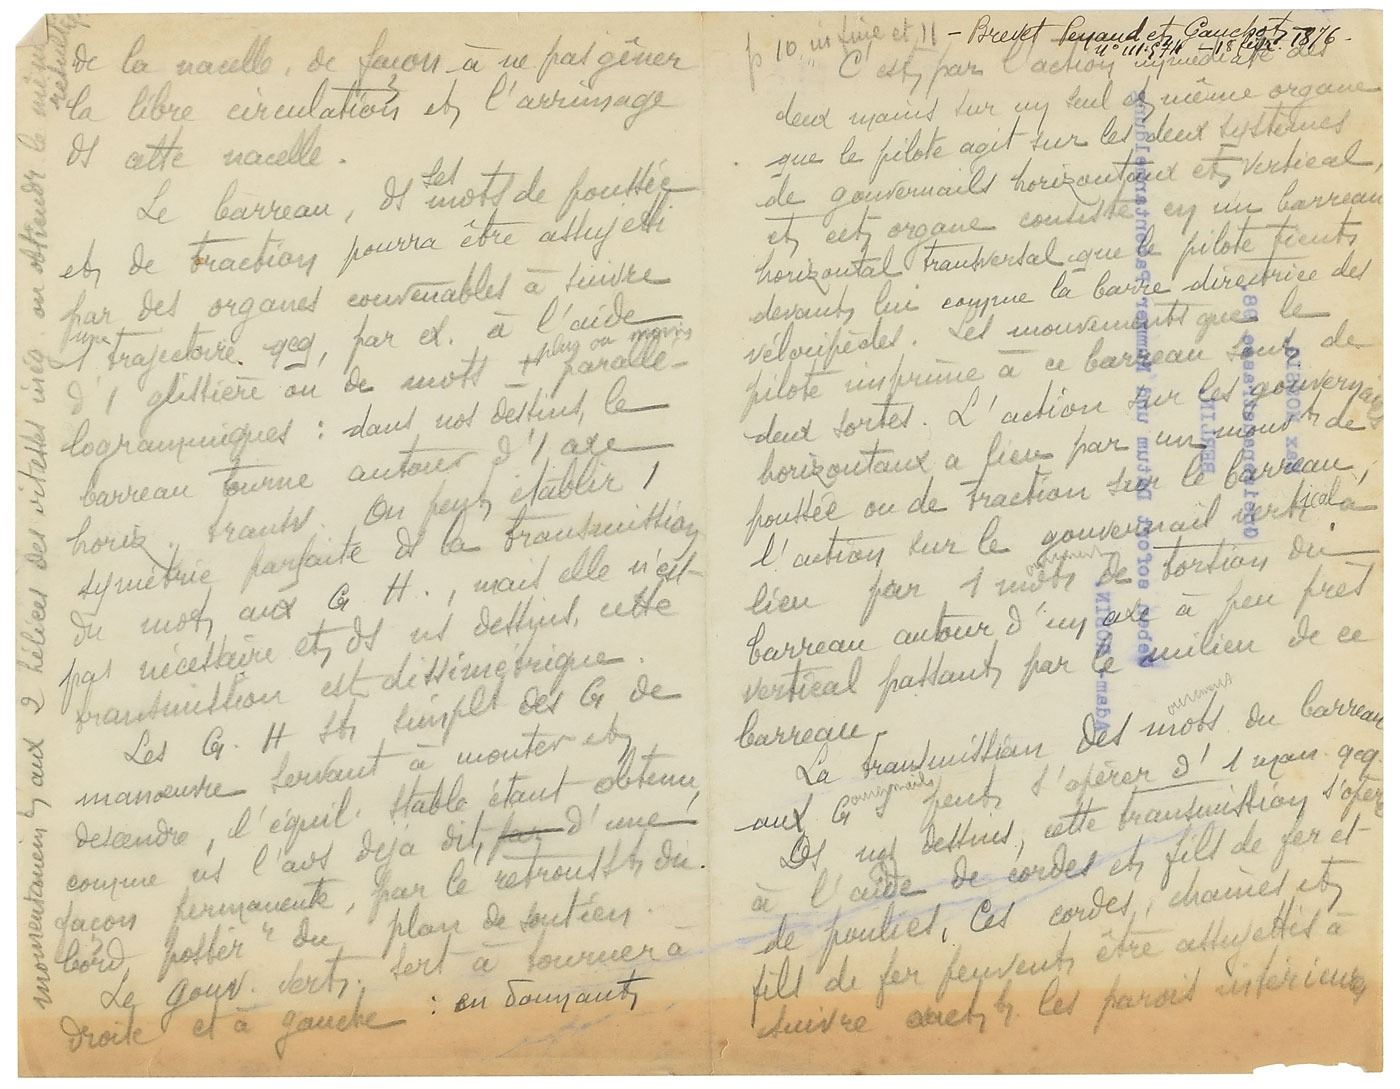 p 10 in fine et 11 - Brevet Penaud et Gauchot 1876 -
n° 111.574 - 18 févr.
C'est par l'action immédiate des
deux mains sur un seul et même organe
que le pilote agit sur les deux systèmes
de gouvernails horizontaux et vertical,
et cet organe consiste en un barreau
horizontal transversal que le pilote tient
devant lui comme la barre directrice des
vélocipèdes. Les mouvements que le
pilote imprime à ce barreau sont de
deux sortes. L'action sur les gouvernails
horizontaux a lieu par un mouvt de
poussée ou de traction sur le barreau,
l'action sur le gouvernail vertical a
lieu par 1 mots de tortion du
barreau autour d'un axe à peu près
vertical passant par le milieu de ce
barreau.
La transmission des mots du barreau
aux G ouvernails peut s'opérer d'1 man. qcq.
Ds nos dessins, cette transmission s'opère
à l'aide de cordes et fils de fer et
de poulies, Ces cordes, chaînes et
fils de fer peuvent être assujettis à
suivre les parois intérieures
de la nacelle, de façon à ne pas gêner
la libre circulation et l'arrimage
ds cette nacelle.
Le barreau, ds ses mots de poussée
et de traction pourra être assujetti
par des organes convenables à suivre
1 trajectoire qcq, par ex. à l'aide
d'1 glissière ou de mots + plus ou moins parallé-
logrammiques : dans nos dessins, le
barreau tourne autour d'1 axe
horiz. transv. On peut établir 1
symétrie parfaite ds la transmission
du mot aux G H., mais elle n'est
pas nécessaire et ds ns dessins, cette
transmission est dissimétrique.
Les G. H st simplt des G de
manœuvre servant à monter et
descendre, l'équil. stable étant obtenu,
comme ns l'avs déjà dit, par d'une
façon permanente, par le retrousst du
bord postérr du plan de soutien.
Le gouv. vert. sert à tourner à
droite et à gauche : en donnant
momentanémt aux 2 hélices des vitesses inég. on obtiendr le même
résultat